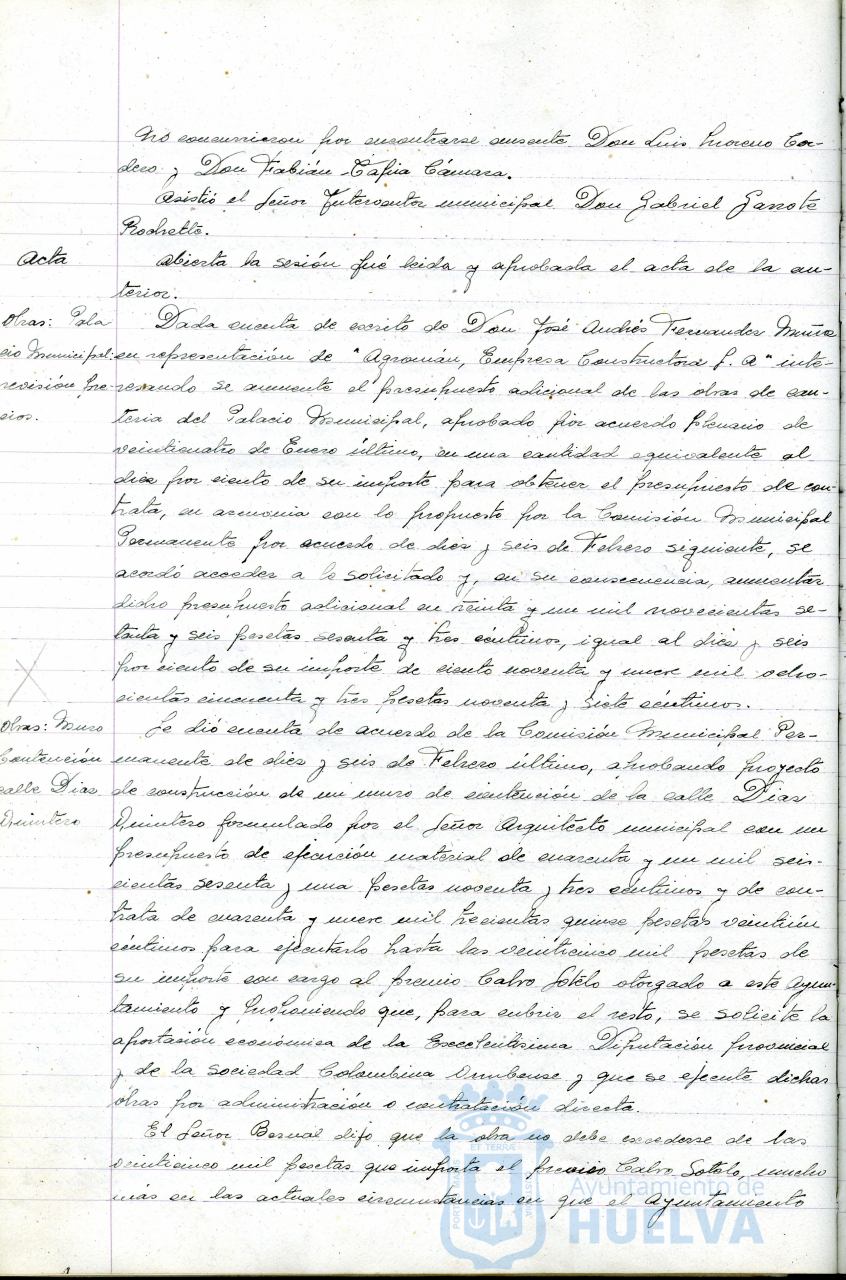 No concurrieron por encontrarse ausente Don Luis Moreno Cor-
dero y Don Fabián Tapia Cámara.
Asistió el Señor Interventor municipal Don Gabriel Garrote
Rochette.
Acta
Abierta la sesión fué leida y aprobada el acta de la an-
terior.
Obras: Pala
cio Municipal:
revisión pre-
cios.
Dada cuenta de escrito de Don José Andrés Fernandez Muñoz
en representación de "Agromán, Empresa Constructora S. A" inte-
resando se aumente el presupuesto adicional de las obras de can-
teria del Palacio Municipal, aprobado por acuerdo plenario de
veinticuatro de Enero último, en una cantidad equivalente al
diez por ciento de su importe para obtener el presupuesto de con-
trata, en armonia con lo propuesto por la Comisión Municipal
Permanente por acuerdo de diez y seis de Febrero siguiente, se
acordó acceder a lo solicitado y, en su consecuencia, aumentar
dicho presupuesto adicional en treinta y un mil novecientas se-
tenta y seis pesetas sesenta y tres céntimos, igual al diez y seis
por ciento de su importe de ciento noventa y nueve mil ocho-
cientas cincuenta y tres pesetas noventa y siete céntimos.
Obras: Muro
Contención
calle Diaz
Quintero
Se dió cuenta de acuerdo de la Comisión Municipal Per-
manente de diez y seis de Febrero último, aprobando proyecto
de construcción de un muro de contención de la calle Diaz
Quintero formulado por el Señor Arquitecto municipal con un
presupuesto de ejecución material de cuarenta y un mil seis-
cientas sesenta y una pesetas noventa y tres céntimos y de con-
trata de cuarenta y nueve mil trecientas quince pesetas veintiún
céntimos para ejecutarlo hasta las veinticinco mil pesetas de
su importe con cargo al premio Calvo Sotelo otorgado a este Ayun-
tamiento y proponiendo que, para cubrir el resto, se solicite la
aportación económica de la Excelentísima Diputación provincial
y de la Sociedad Colombina Onubense y que se ejecute dichas
obras por administración o contratación directa.
El Señor Bernal dijo que la obra no debe excederse de las
veinticinco mil pesetas que importa el premio Calvo Sotelo, mucho
más en las actuales circunstancias en que el Ayuntamiento
Ayuntamiento de
HUELVA